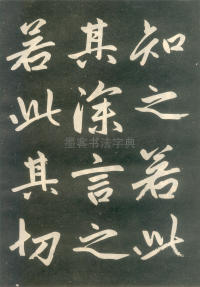 知之若此
其深言之
若此其切
墨客书法字典